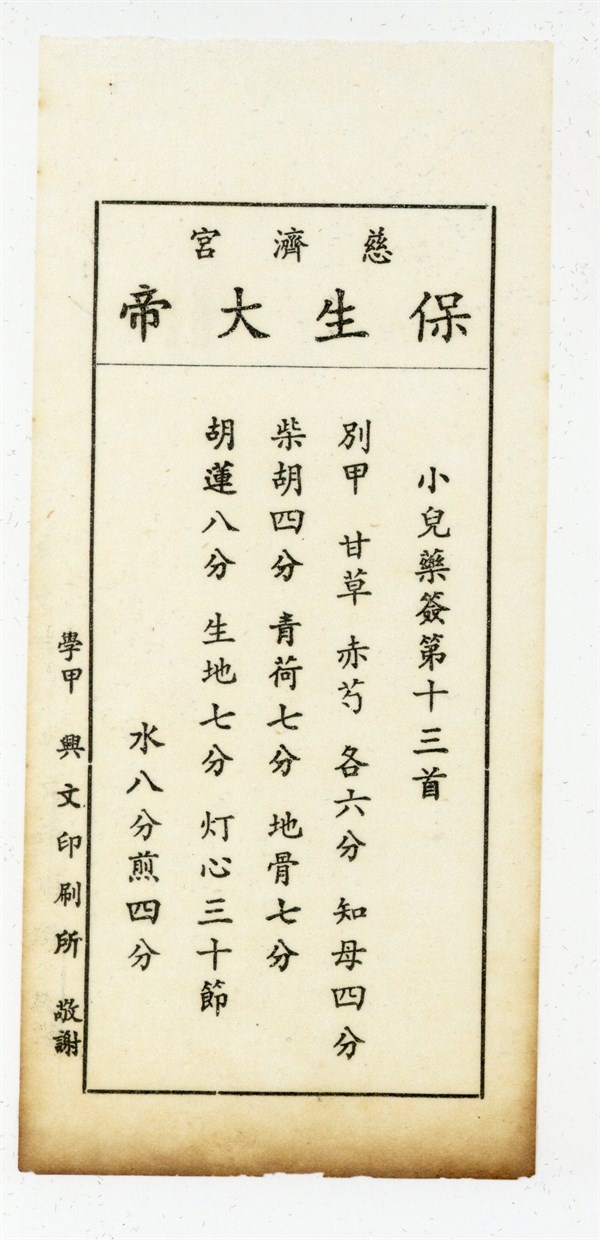 慈濟宮
保生大帝
小兒藥簽第十三首
別甲 甘草 赤芍 各六分 知母四分
柴胡四分 青荷七分 地骨七分
胡蓮八分 生地七分 灯心三十節
水八分煎四分
學甲 興文印刷所 敬謝